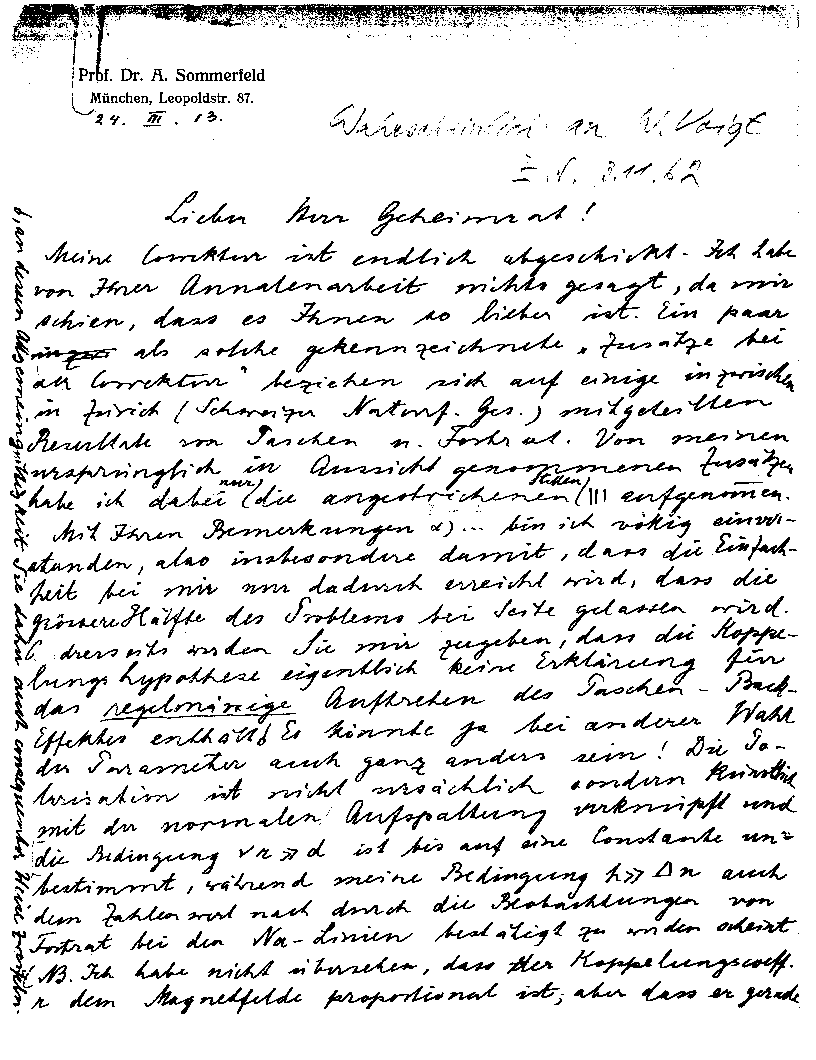 Prof. Dr. A. Sommerfeld
München, Leopoldstr. 87.
24. III. 13.
Wahrscheinlich an W. Voigt
3.11.62
Lieber Herr Geheimrat!
Meine Correktur ist endlich abgeschickt. Ich habe
von Ihrer Annalenarbeit nichts gesagt, da mir
schien, dass es Ihnen so lieber ist. Ein paar
als solche gekennzeichnete „Zusätze bei
der Correktur" beziehen sich auf einige inzwischen
in Zürich (Schweizer Naturf. Ges.) mitgeteilten
Resultate von Paschen u. Fortrat. Von meinen
ursprünglich in Aussicht genommenen Zusätzen
habe ich dabei nur die angestrichenen Stellen ||| aufgenommen.
Mit Ihren Bemerkungen α)... bin ich völlig einver-
standen, also insbesondere damit, dass die Einfach-
heit bei mir nur dadurch erreicht wird, dass die
grössere Hälfte des Problems bei Seite gelassen wird.
Andrerseits werden Sie mir zugeben, dass die Koppe-
lungshypothese eigentlich keine Erklärung für
das regelmässige Auftreten des Paschen-Back-
Effektes enthält. Es könnte ja bei anderer Wahl
der Parameter auch ganz anders sein! Die Po-
larisation ist nicht ursächlich sondern künstlich
mit der normalen Aufspaltung verknüpft und
die Bedingung νr ≫ d ist bis auf eine Constante un=
bestimmt, während meine Bedingung h ≫ Δn auch
dem Zahlenwert nach durch die Beobachtungen von
Fortrat bei den Na-Linien bestätigt zu werden scheint
NB. Ich habe nicht übersehen, dass der Koppelungscoeff.
r dem Magnetfelde proportional ist, aber dass er gerade
an deren Allgemeingültigkeit Sie daher auch consequenter Weise zweifeln.